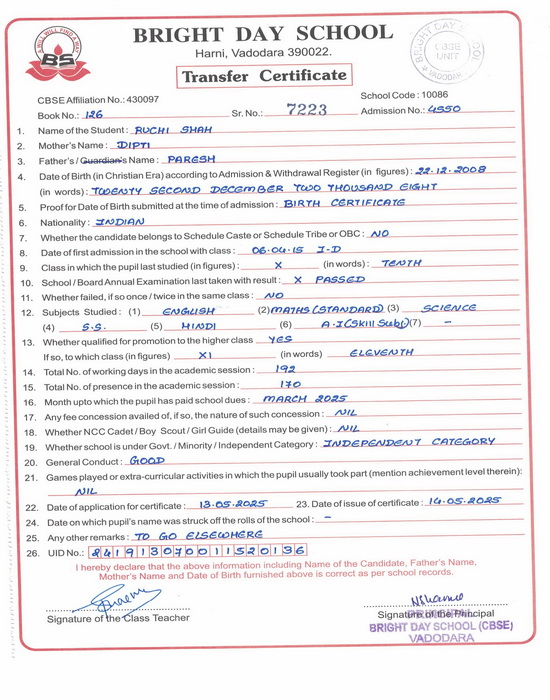 A WILL WILL FIND A WAY
BS
BRIGHT DAY SCHOOL
Harni, Vadodara 390022.
Transfer Certificate
BRIGHT DAY
CBSE
UNIT
VADODARA
CBSE Affiliation No.: 430097 School Code : 10086
Book No.: 126 Sr. No.: 7223 Admission No.: 4550
1. Name of the Student : RUCHI SHAH
2. Mother's Name : DIPTI
3. Father's / Guardian's Name : PARESH
4. Date of Birth (in Christian Era) according to Admission & Withdrawal Register (in figures) : 22.12.2008
(in words) : TWENTY SECOND DECEMBER TWO THOUSAND EIGHT
5. Proof for Date of Birth submitted at the time of admission : BIRTH CERTIFICATE
6. Nationality : INDIAN
7. Whether the candidate belongs to Schedule Caste or Schedule Tribe or OBC : NO
8. Date of first admission in the school with class : 06.04.15 I-D
9. Class in which the pupil last studied (in figures) : X (in words) : TENTH
10. School / Board Annual Examination last taken with result : X PASSED
11. Whether failed, if so once / twice in the same class : NO
12. Subjects Studied : (1) ENGLISH (2) MATHS (STANDARD) (3) SCIENCE
(4) S.S. (5) HINDI (6) A.I (Skill Subj) (7) –
13. Whether qualified for promotion to the higher class YES
If so, to which class (in figures) XI (in words) ELEVENTH
14. Total No. of working days in the academic session : 192
15. Total No. of presence in the academic session : 170
16. Month upto which the pupil has paid school dues : MARCH 2025
17. Any fee concession availed of, if so, the nature of such concession : NIL
18. Whether NCC Cadet / Boy Scout / Girl Guide (details may be given) : NIL
19. Whether school is under Govt. / Minority / Independent Category : INDEPENDENT CATEGORY
20. General Conduct : GOOD
21. Games played or extra-curricular activities in which the pupil usually took part (mention achievement level therein) :
NIL
22. Date of application for certificate : 13.05.2025 23. Date of issue of certificate : 14.05.2025
24. Date on which pupil's name was struck off the rolls of the school : –
25. Any other remarks : TO GO ELSEWHERE
26. UID No.: 841913070011520136
I hereby declare that the above information including Name of the Candidate, Father's Name,
Mother's Name and Date of Birth furnished above is correct as per school records.
Signature of the Class Teacher Signature of the Principal
PRINCIPAL
BRIGHT DAY SCHOOL (CBSE)
VADODARA